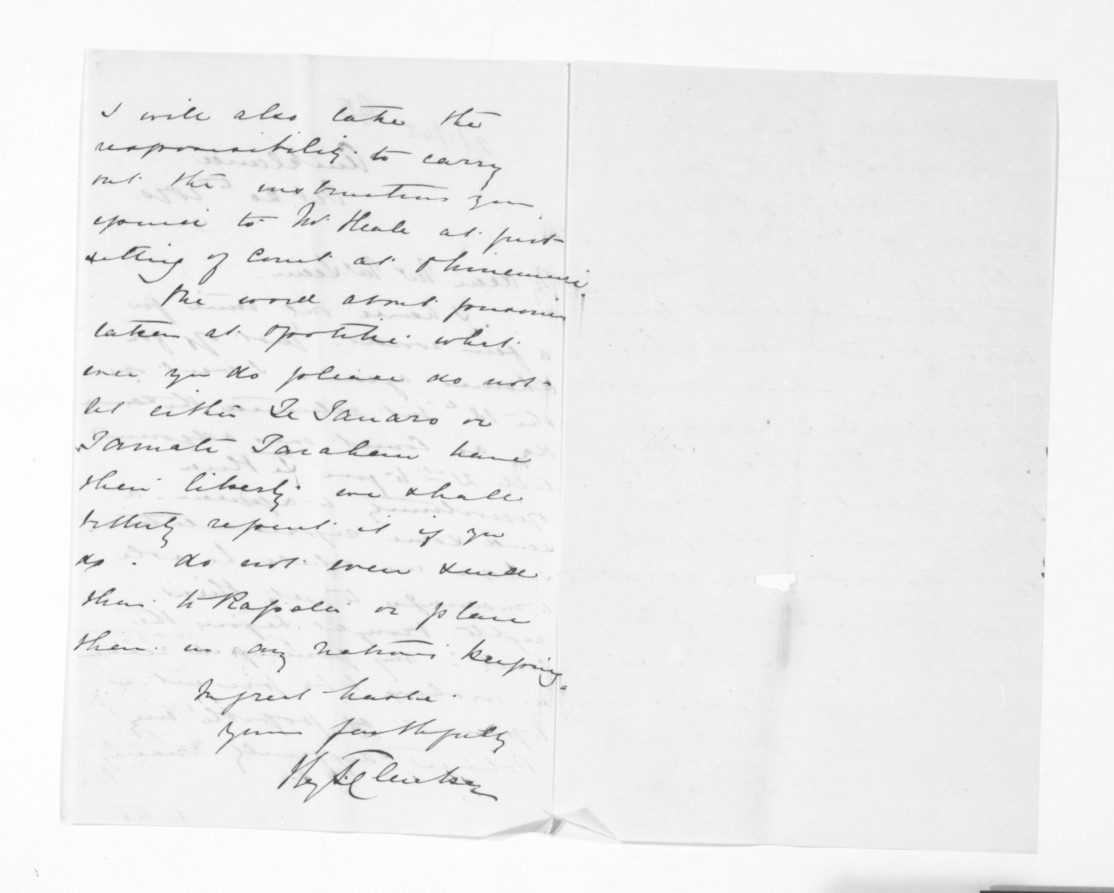 I will also take the
responsibility to carry
out the instructions you
to Mr Heale at first
sitting of Court at Ohinemuri
One word about prisoners
taken at Opotiki what
ever you do please do not
let either Te Tanaro or
Tamati Tarahau have
their liberty we shall
bitterly repent it if you
do. do not even send
them to or place
them in any natives keeping.
In great haste.
Yours faithfully
Hy T Clarke